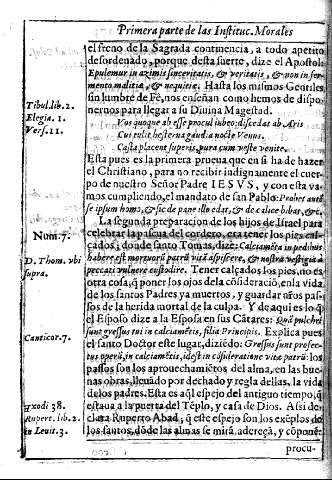 Primera parte de las Instituc. Morales
el freno de la Sagrada continencia, a todo apetito
desordenado, porque desta suerte, dize el Apostol:
Epulemur in azimis sinceritatis, & veritatis, & non in fer-
mento malitiæ, & nequitiæ. Hasta los mismos Gentiles
sin lumbre de Fè, nos enseñan como hemos de dispo-
nernos para llegar a su Diuina Magestad.
Tibul. lib. 2.
Elegia. 1.
Vers. 11.
Vos quoque abesse procul iubeo: discedat ab Aris
Cui tulit hesterna gaudia nocte Venus.
Casta placent superis, pura cum veste venite.
Esta pues es la primera prueua que en si ha de hazer
el Christiano, para no recibir indignamente el cuer-
po de nuestro Señor Padre IESVS, y con esta va-
mos cumpliendo, el mandato de san Pablo: Probet aute
se ipsum homo, & sic de pane illo edat, & de calice bibat, &c.
Num. 7.
La segunda preparacion de los hijos de Israel para
celebrar la pascua del cordero, era tener los pies cal-
çados; donde santo Tomas, dize: Calciametra in pedibus
D. Thom. vbi
supra.
habere est mortuorũ patrũ vitã aspicere, & nostra vestigia à
peccati vulnere custodire. Tener calçados los pies, no es
otra cosa, q̃ poner los ojos de la cõsideraciõ, en la vida
de los santos Padres ya muertos, y guardar nr̃os pas-
sos de la herida mortal de la culpa. Y de aqui es lo q̃
el Esposo dize a la Esposa en sus Cãtares: Quã pulchri
Canticor. 7.
sunt gressus tui in calciamẽtis, filia Principis. Explica pues
el santo Doctor este lugar, diziẽdo: Gressus sunt profec-
tus operũ, in calciamẽtis, id est in cõsideratione vitæ patrũ: los
passos son los aprouechamiẽtos del alma, en las bue-
nas obras, lleuado por dechado y regla dellas, la vida
de los padres. Esta es aq̃l espejo del antiguo tiempo, q̃
Exodi 38.
estaua a la puerta del Tẽplo, y casa de Dios. Assi de-
Rupert. lib. 2.
in Leuit. 3.
clara Ruperto Abad; q̃ este espejo son los exẽplos de
los santos, dõde las almas se mirã, adereçã, y cõponẽ:
procu-